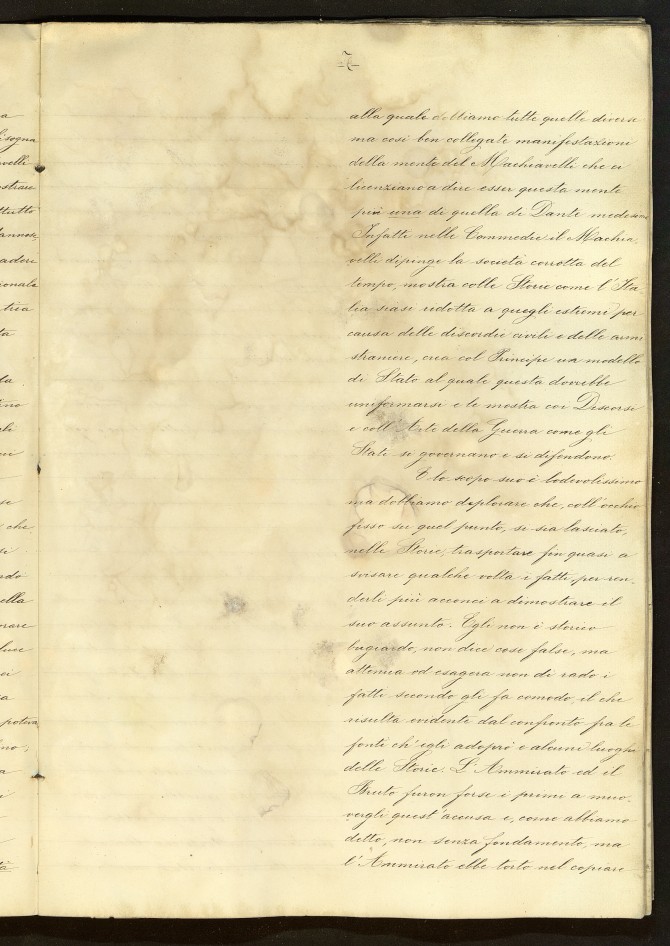 7
alla quale dobbiamo tutte quelle diverse
ma così ben collegate manifestazioni
della mente del Machiavelli che ci
licenziano a dire esser questa mente
più una di quella di Dante medesimo
Infatti nelle Commedie il Machia-
velli dipinge la società corrotta del
tempo, mostra colle Storie come l'Ita-
lia siasi ridotta a quegli estremi per
causa delle discordie civili e delle armi
straniere, crea col Principe un modello
di Stato al quale questa dovrebbe
uniformarsi e le mostra coi Discorsi
e coll'Arte della Guerra come gli
Stati si governano e si difendono.
E lo scopo suo è lodevolissimo
ma dobbiamo deplorare che, coll'occhio
fisso su quel punto, si sia lasciato,
nelle Storie, trasportare fin quasi a
svisare qualche volta i fatti, per ren-
derli più acconci a dimostrare il
suo assunto. Egli non è storico
bugiardo, non dice cose false, ma
attenua od esagera non di rado i
fatti secondo gli fa comodo, il che
risulta evidente dal confronto fra le
fonti ch'egli adoprò e alcuni luoghi
delle Storie. L'Ammirato ed il
Bruto furon forse i primi a muo-
vergli quest'accusa e, come abbiamo
detto, non senza fondamento, ma
l'Ammirato ebbe torto nel copiare